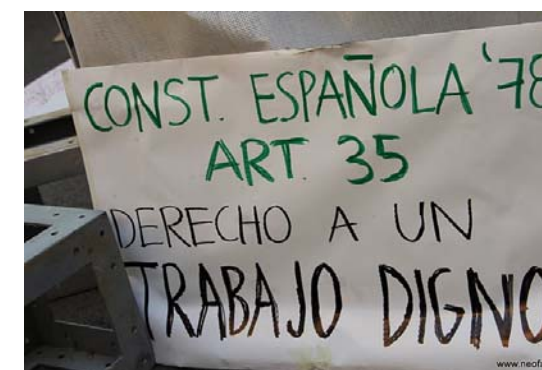 CONST. ESPAÑOLA '78
ART. 35
DERECHO A UN
TRABAJO DIGNO